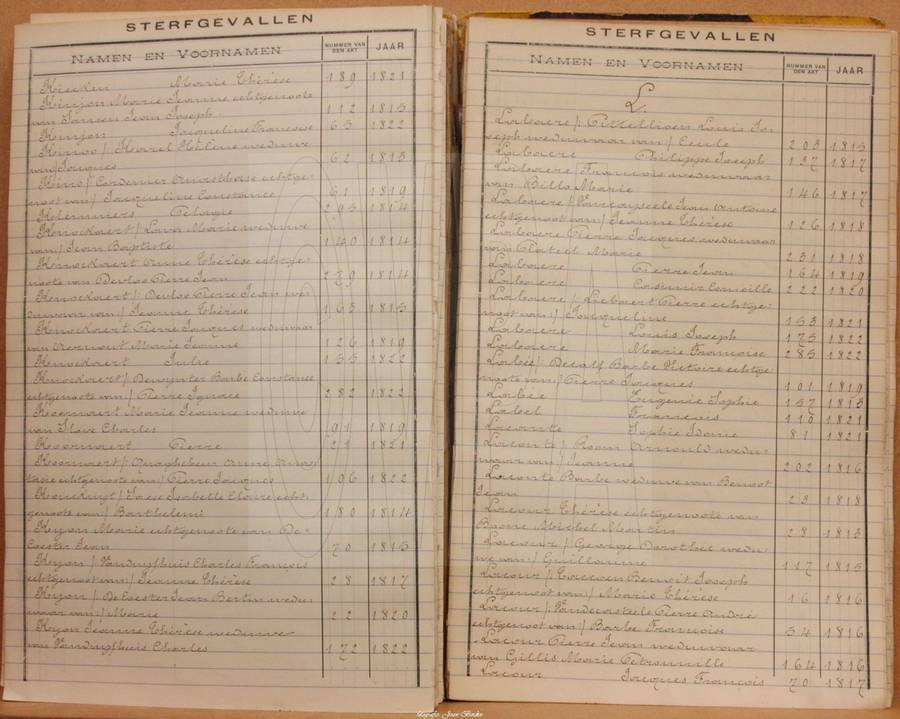 STERFGEVALLEN
NAMEN EN VOORNAMEN NUMMER VAN DEN AKT JAAR
Kiecken Marie Thérèse 189 1821
Kinjon Marie Jeanne echtgenoote
van Jansen Jean Joseph 112 1815
Kinjon Jacqueline Françoise 65 1822
weduwe
van Jacques 62 1813
echtge-
noot van Jacqueline Constance 61 1819
Pélagie 295 1814
Marie weduwe
van Jean Baptiste 140 1814
Knockaert Anne Thérèse echtge-
noote van Devloo Pierre Jean 279 1814
Knockaert / Devloo Pierre Jean we-
duwaar van / Jeanne Thérèse 163 1815
Knockaert Pierre Jacques weduwaar
van Marie Jeanne 126 1819
Knockaert Julie 155 1822
Knockaert / Barbe Constance
echtgenoote van / Pierre Ignace 282 1822
Marie Jeanne weduwe
van Charles 91 1819
Koornaert Pierre 21 1821
Koornaert / Anne
echtgenoote van / Pierre Jacques 106 1822
Isabelle Claire echt-
genoote van / Barthélemi 180 1814
Kryon Marie echtgenoote van De
Coester Jean 70 1815
Kryon / Vanduyfhuis Charles François
echtgenoot van / Jeanne Thérèse 28 1817
Kryon / De Coester Jean Bertin wedu-
waar van / Marie 22 1820
Kryon Jeanne Thérèse weduwe
van Vanduyfhuis Charles 172 1822
STERFGEVALLEN
NAMEN EN VOORNAMEN NUMMER VAN DEN AKT JAAR
L.
Labaere / Louis Jo-
seph weduwaar van / Cecile 203 1815
Labaere Philippe Joseph 137 1817
Labaere / François weduwaar
van Bills Marie 146 1817
Labaere / Vancayseele Jean Antoine
echtgenoot van / Jeanne Thérèse 126 1818
Labaere Pierre Jacques weduwaar
van Marie 231 1818
Labaere Pierre Jean 164 1819
Labaere Casimir Corneille 222 1820
Labaere / Liebaert Pierre echtge-
noot van / Jacqueline 153 1821
Labaere Louis Joseph 175 1822
Labaere Marie Françoise 285 1822
Labée / Decalf Barbe Victoire echtge-
noote van / Pierre Jacques 101 1819
Labée Eugenie Sophie 157 1813
Label François 110 1821
Laconte Sophie 81 1821
Laconte / Room Arnould wedu-
waar van / Jeanne 202 1816
Laconte Barbe weduwe van Benoot
Jean 23 1818
Lacour Thérèse echtgenoote van
Boone Michel Martin 28 1813
Lacour / George Dorothée wedu-
we van / Guillaume 117 1815
Lacour / Benoit Joseph
echtgenoot van / Marie Thérèse 16 1816
Lacour / Vandecasteele Pierre André
echtgenoot van / Barbe Françoise 54 1816
Lacour Pierre Jean weduwaar
van Gillis Marie Petronille 164 1816
Lacour Jacques François 70 1817